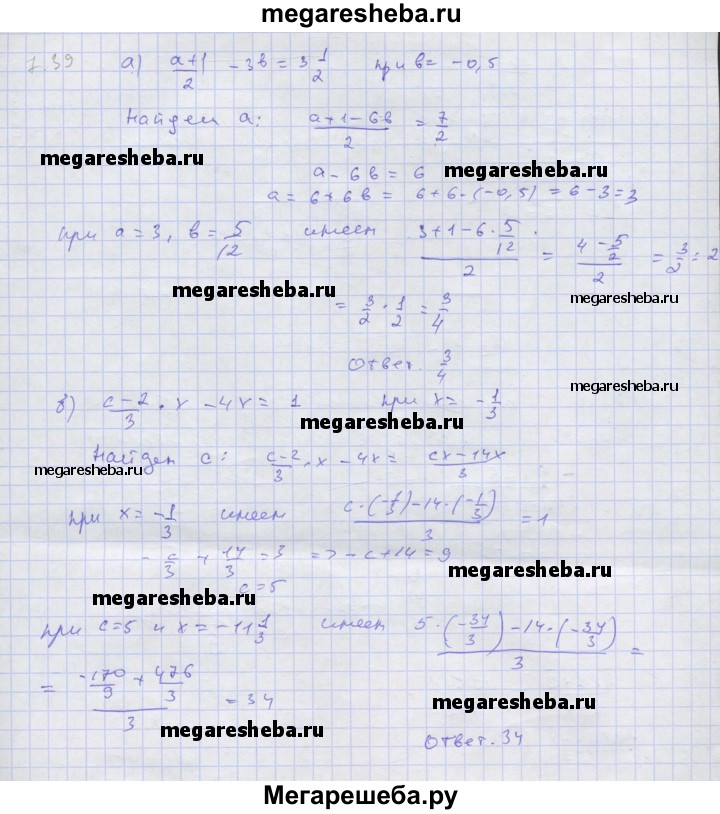 megaresheba.ru
7.39 а) (a+1)/2 - 3в = 3 1/2 при в = -0,5
Найдем а: (a+1-6в)/2 = 7/2
megaresheba.ru
a - 6в = 6 megaresheba.ru
a = 6+6в = 6+6·(-0,5) = 6-3=3
при a=3, в=5/12 имеем (3+1-6·5/12)/2 = (4-5/2)/2 = 3/2 : 2
megaresheba.ru
= 3/2 · 1/2 = 3/4 megaresheba.ru
Ответ. 3/4
megaresheba.ru
в) (c-2)/3 · x - 4x = 1 при x = -1/3
megaresheba.ru
Найдем c: (c-2)/3 · x - 4x = (cx-14x)/3
megaresheba.ru
при x = -1/3 имеем (c·(-1/3)-14·(-1/3))/3 = 1
-c/3 + 14/3 = 3 => -c+14=9
megaresheba.ru
c=5
megaresheba.ru
при c=5 и x=-11 1/3 имеем (5·(-34/3)-14·(-34/3))/3 =
= (-170/9 + 476/3)/3 = 34
megaresheba.ru
megaresheba.ru
Ответ. 34
Мегарешеба.ру